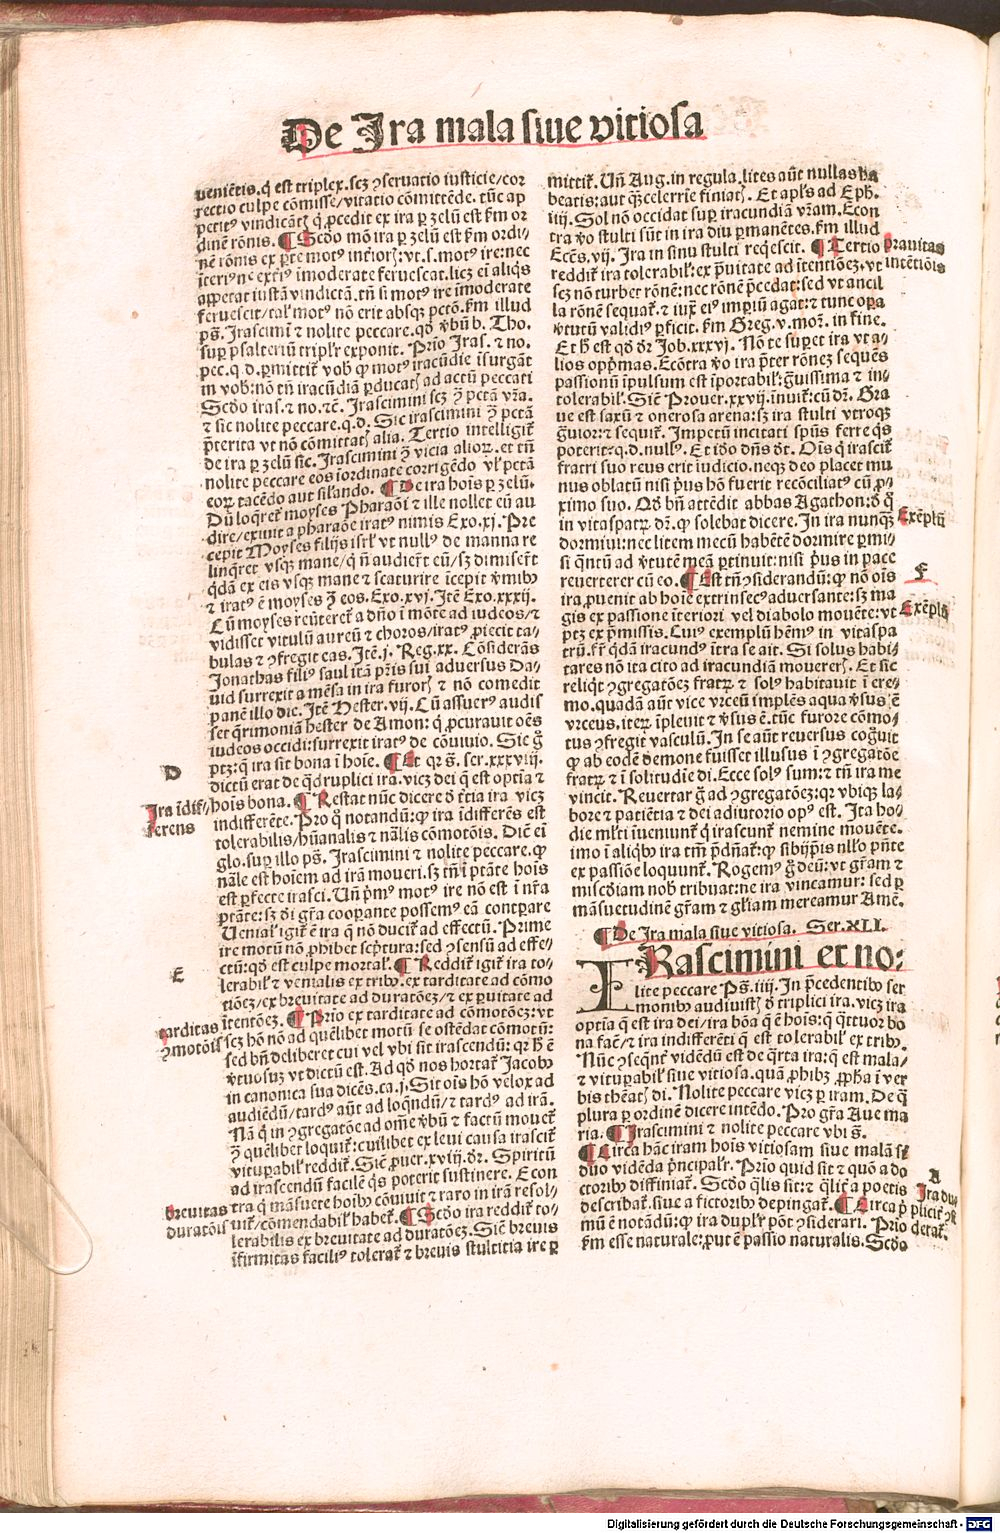 De Ira mala siue vitiosa
veniētis. q̇ est triplex. scz ꝯseruatio iusticie/cor
rectio culpe cōmisse/vitatio cōmittēde. tūc ap
petitꝰ vindicātꝭ q̇ ꝓcedit ex ira ꝑ zelū est ẜm or
dinē rōnis. ¶ Scḋo mō ira ꝑ zelū est ẜm ordi-
nē rōnis ex ꝑte motꝰ interi: vt .s. motꝰ ire: nec
appetat iustā vindictā. tn̄ si motꝰ ire īmoderate
feruescit/tal' motꝰ nō erit absqꝫ pctō. ẜm illud
ps̄. Irascimī ⁊ nolite peccare. qḋ v̄bū b. Tho.
suꝑ psalteriū tripl'r exponit. Prīo Iras. ⁊ no.
pec. q. d. ꝑmittit̄ vob̄ ꝙ motꝰ iracūdie īsurgāt
in vob̄: nō tn̄ iracūdiā ꝑducatꝭ ad actū peccati
Scḋo iras. ⁊ no. ⁊c̄. Irascimini scz ꝯ̄ pctā vr̄a.
⁊ sic nolite peccare. q. d. Sic irascimini ꝯ̄ pctā
p̄terita vt nō cōmittatꝭ alia. Tertio intelligit̄
de ira ꝑ zelū sic. Irascimini ꝯ̄ vicia alioꝝ. et tn̄
nolite peccare eos iordinate corrigēdo vl' pctā
eoꝝ tacēdo aut silando. ¶ De ira hoīs ꝑ zelū.
Dū loq̄ret̄ moyses Pharaōi ⁊ ille nollet eū au
dire/exiuit a pharaōe iratꝰ nimis Exo. xj. Pre
cepit Moyses filijs isrl' vt nullꝰ de manna re
linq̄ret vsqꝫ mane/q̇ n̄ audiert̄ eū/sz dimisert̄
q̇dā ex eis vsqꝫ mane ⁊ scaturire īcepit v̄mibꝰ
⁊ iratꝰ ē moyses ꝯ̄ eos. Exo. xvj. Itē Exo. xxxij.
Cū moyses reuteret̄ a dn̄o ī mōte ad iudeos/⁊
vidisset vitulū aureū ⁊ choros/iratꝰ ꝓiecit ta-
bulas ⁊ ꝯfregit eas. Itē. j. Reg. xx. Cōsiderās
Jonathas filiꝰ saul irā pr̄is sui aduersus Da-
uid surrexit a mēsa in ira furorꝭ ⁊ nō comedit
panē illo die. Itē Hester. vij. Cū assuerꝰ audis
set q̄rimoniā hester de Amon: q̇ ꝓcurauit oēs
iudeos occidi: surrexit iratꝰ de cōuiuio. Sic ḡ
ptz: q̇ ira sit bona ī hoīe. ¶ Et qꝛ s̄. ser. xxxviij.
dictū erat de q̇druplici ira. vicz dei q̇ est optīa ⁊
hoīs bona. ¶ Restat nūc dicere ḋ t̄tia ira vicz
indifferēte. Pro q̇ notandū: ꝙ ira īdifferēs est
tolerabilis/hūanalis ⁊ nālis cōmotōis. Dicit eī
glo. suꝑ illo ps̄. Irascimini ⁊ nolite peccare. ꝙ
nāle est hoīem ad irā moueri. sz tn̄ ī ptāte hoīs
est ꝑfecte irasci. Un̄ p̄mꝰ motꝰ ire nō est ī nr̄a
ptāte: sz di gr̄a cooꝑante possemꝰ eā contꝑare
Uenial' igit̄ ē ira q̄ nō ducit̄ ad effectū. Prime
ire motū nō ꝓhibet scptura: sed ꝯsensū ad effe-
ctū: qḋ est culpe mortal'. ¶ Reddit̄ igit̄ ira to-
lerabil' ⁊ venialis ex tribꝰ. ex tarditate ad cōmo
tiōez/ex breuitate ad duratōez/⁊ ex ꝑuitate ad
ītentōez. ¶ Prīo ex tarditate ad cōmotōez: vt
scz hō nō ad quēlibet motū se ostēdat cōmotū:
sed bn̄ deliberet cui vel vbi sit irascendū: qꝛ h̄ ē
v̄tuosuz vt dictū est. Ad qḋ nos hortat̄ Jacobꝰ
in canonica sua dicēs. ca. j. Sit oīs hō velox ad
audiēdū/tardꝰ aūt ad loq̄ndū/⁊ tardꝰ ad irā.
Nā q̇ in ꝯgregatōe ad om̄e v̄bū ⁊ factū mouet̄
ꝯ̄ quēliber loquit̄: cuilibet ex leui causa irascit̄
vituꝑabil' reddit̄. Sic ꝓuer. xviij. dr̄. Spiritū
ad irascendū facilē q̇s poterit sustinere. Econ
tra q̇ māsuete hoībꝰ cōuiuit ⁊ raro in irā resol-
uit̄/cōmendabil' habet̄. ¶ Scḋo ira reddit̄ to-
lerabilis ex breuitate ad duratōez. Sic breuis
īfirmitas faciliꝰ tolerat̄ ⁊ breuis stultitia ire ꝑ
D
Ira īdif-
ferens
E
tarditas
ꝯmotōis
breuitas
duratōis
mittit̄. Un̄ Aug. in regula. lites aūt nullas ha
beatis: aut q̄celerrīe finiatꝭ. Et apl's ad Eph.
iiij. Sol nō occidat suꝑ iracundiā vr̄am. Econ
tra v̄o stulti sūt in ira diu ꝑmanētes. ẜm illud
Eccs̄. vij. Ira in sinu stulti reqescit. ¶ Tertio
reddit̄ ira tolerabil' ex ꝑuitate ad ītentiōez. vt
scz nō turbet rōnē: nec rōnē p̄cedat: sed vt ancil
la rōnē sequat̄. ⁊ iux̄ eiꝰ imꝑiū agat: ⁊ tunc oꝑa
v̄tutū validiꝰ ꝑficit. ẜm Greg. v. mor̄. in fine.
Et h̄ est qḋ dr̄ Job. xxxvj. Nō te suꝑet ira vt a-
lios opp̄mas. Ecōtra v̄o ira p̄ter rōnez sequēs
passionū īpulsum est īportabil' g̃uissima ⁊ in-
tolerabil'. Sic̄ Prouer. xxvij. īnuit̄: cū dr̄. Gra
ue est saxū ⁊ onerosa arena: sz ira stulti vtroqꝫ
g̃uior: ⁊ sequit̄. Impetū incitati spūs ferre q̇s
poterit: q. d. nullꝰ. Et iḋo dn̄s dt̄. Oīs q̇ irascit̄
fratri suo reus erit iudicio. neqꝫ deo placet mu
nus oblatū nisi pꝰus hō fuerit recōciliatꝰ cū ꝓ-
ximo suo. Qḋ bn̄ attēdit abbas Agathon: ḋ q̄
in vitaspatꝝ dr̄. ꝙ solebat dicere. In ira nunqꝫ
dormiui: nec litem mecū habētē dormire ꝑmi-
si q̄ntū ad v̄tutē meā ꝑtinuit: nisi pꝰus in pace
reuerterer cū eo. ¶ Est tn̄ ꝯsiderandū: ꝙ nō oīs
ira ꝓuenit ab hoīe extrinsecꝰ aduersante: sz ma
gis ex passione īteriori vel diabolo mouēte: vt
ptz ex p̄missis. Cuiꝰ exemplū hēmꝰ in vitaspa
trū. fr̄ q̇dā iracundꝰ ītra se ait. Si solus habi-
tares nō ita cito ad iracundiā mouererꝭ. Et sic
reliq̇t ꝯgregatōez fratꝝ ⁊ solꝰ habitauit ī ere-
mo. quadā aūt vice vrceū implēs aqua v̄sus ē
vrceus. iteꝝ īpleuit ⁊ v̄sus ē. tūc furore cōmo-
tus ꝯfregit vasculū. In se aūt reuersus cog̃uit
ꝙ ab eodē demone fuisset illusus ī ꝯgregatōe
fratꝝ ⁊ ī solitudīe di. Ecce solꝰ sum: ⁊ tn̄ ira me
vincit. Reuertar g̃ ad ꝯgregatōez: qꝛ vbiqꝫ la-
bore ⁊ patiētia ⁊ dei adiutorio opꝰ est. Ita ho-
die ml'ti īueniunt̄ q̇ irascunt̄ nemine mouēte.
imo ī aliq̇bꝰ ira tm̄ p̄dn̄at̄: ꝙ sibijpīs nll'o pn̄te
ex passiōe loquunt̄. Rogemꝰ g̃ deū: vt gr̄am ⁊
misc̄diam nob̄ tribuat: ne ira vincamur: sed ꝑ
māsuetudinē gr̄am ⁊ gl'iam mereamur Amē.
¶ De Ira mala siue vitiosa. Ser. XLI.
IRascimini et no-
lite peccare Ps̄. iiij. In p̄cedentibꝰ ser
monibꝰ audiuistꝭ ḋ triplici ira. vicz ira
optīa q̄ est ira dei/ira bōa q̄ ē hoīs: q̄ q̇ttuor bo
na facit/⁊ ira indifferēti q̄ est tolerabil' ex tribꝰ.
Nūc ꝯseqn̄t̄ vidēdū est de q̄rta ira: q̄ est mala-
⁊ vituꝑabil' siue vitiosa. quā ꝓhibz ꝓpha ī ver
bis theātꝭ di. Nolite peccare vicz ꝑ iram. De q̄
plura ꝑ ordinē dicere intēdo. Pro gr̄a Aue ma
ria. ¶ Irascimini ⁊ nolite peccare vbi s̄.
¶ Circa hāc iram hoīs vitiosam siue malā sꝭ
duo vidēda p̄ncipalr̄. Prīo quid sit ⁊ quō a do
ctoribꝰ diffiniat̄. Scḋo q̄lis sit: ⁊ q̄lit̄ a poetis
describat̄. siue a fictoribꝰ depingat̄. ¶ Circa p̄
mū ē notādū: ꝙ ira dupl'r pōt ꝯsiderari. Prīo
ẜm esse naturale: ꝓut ē passio naturalis. Scḋo
prauitas
intētiōis
Exēplū
F
Exēplū
A
Ira du-
plicit̄ ꝯsi
derat̄.
Digitalisierung gefördert durch die Deutsche Forschungsgemeinschaft - DFG